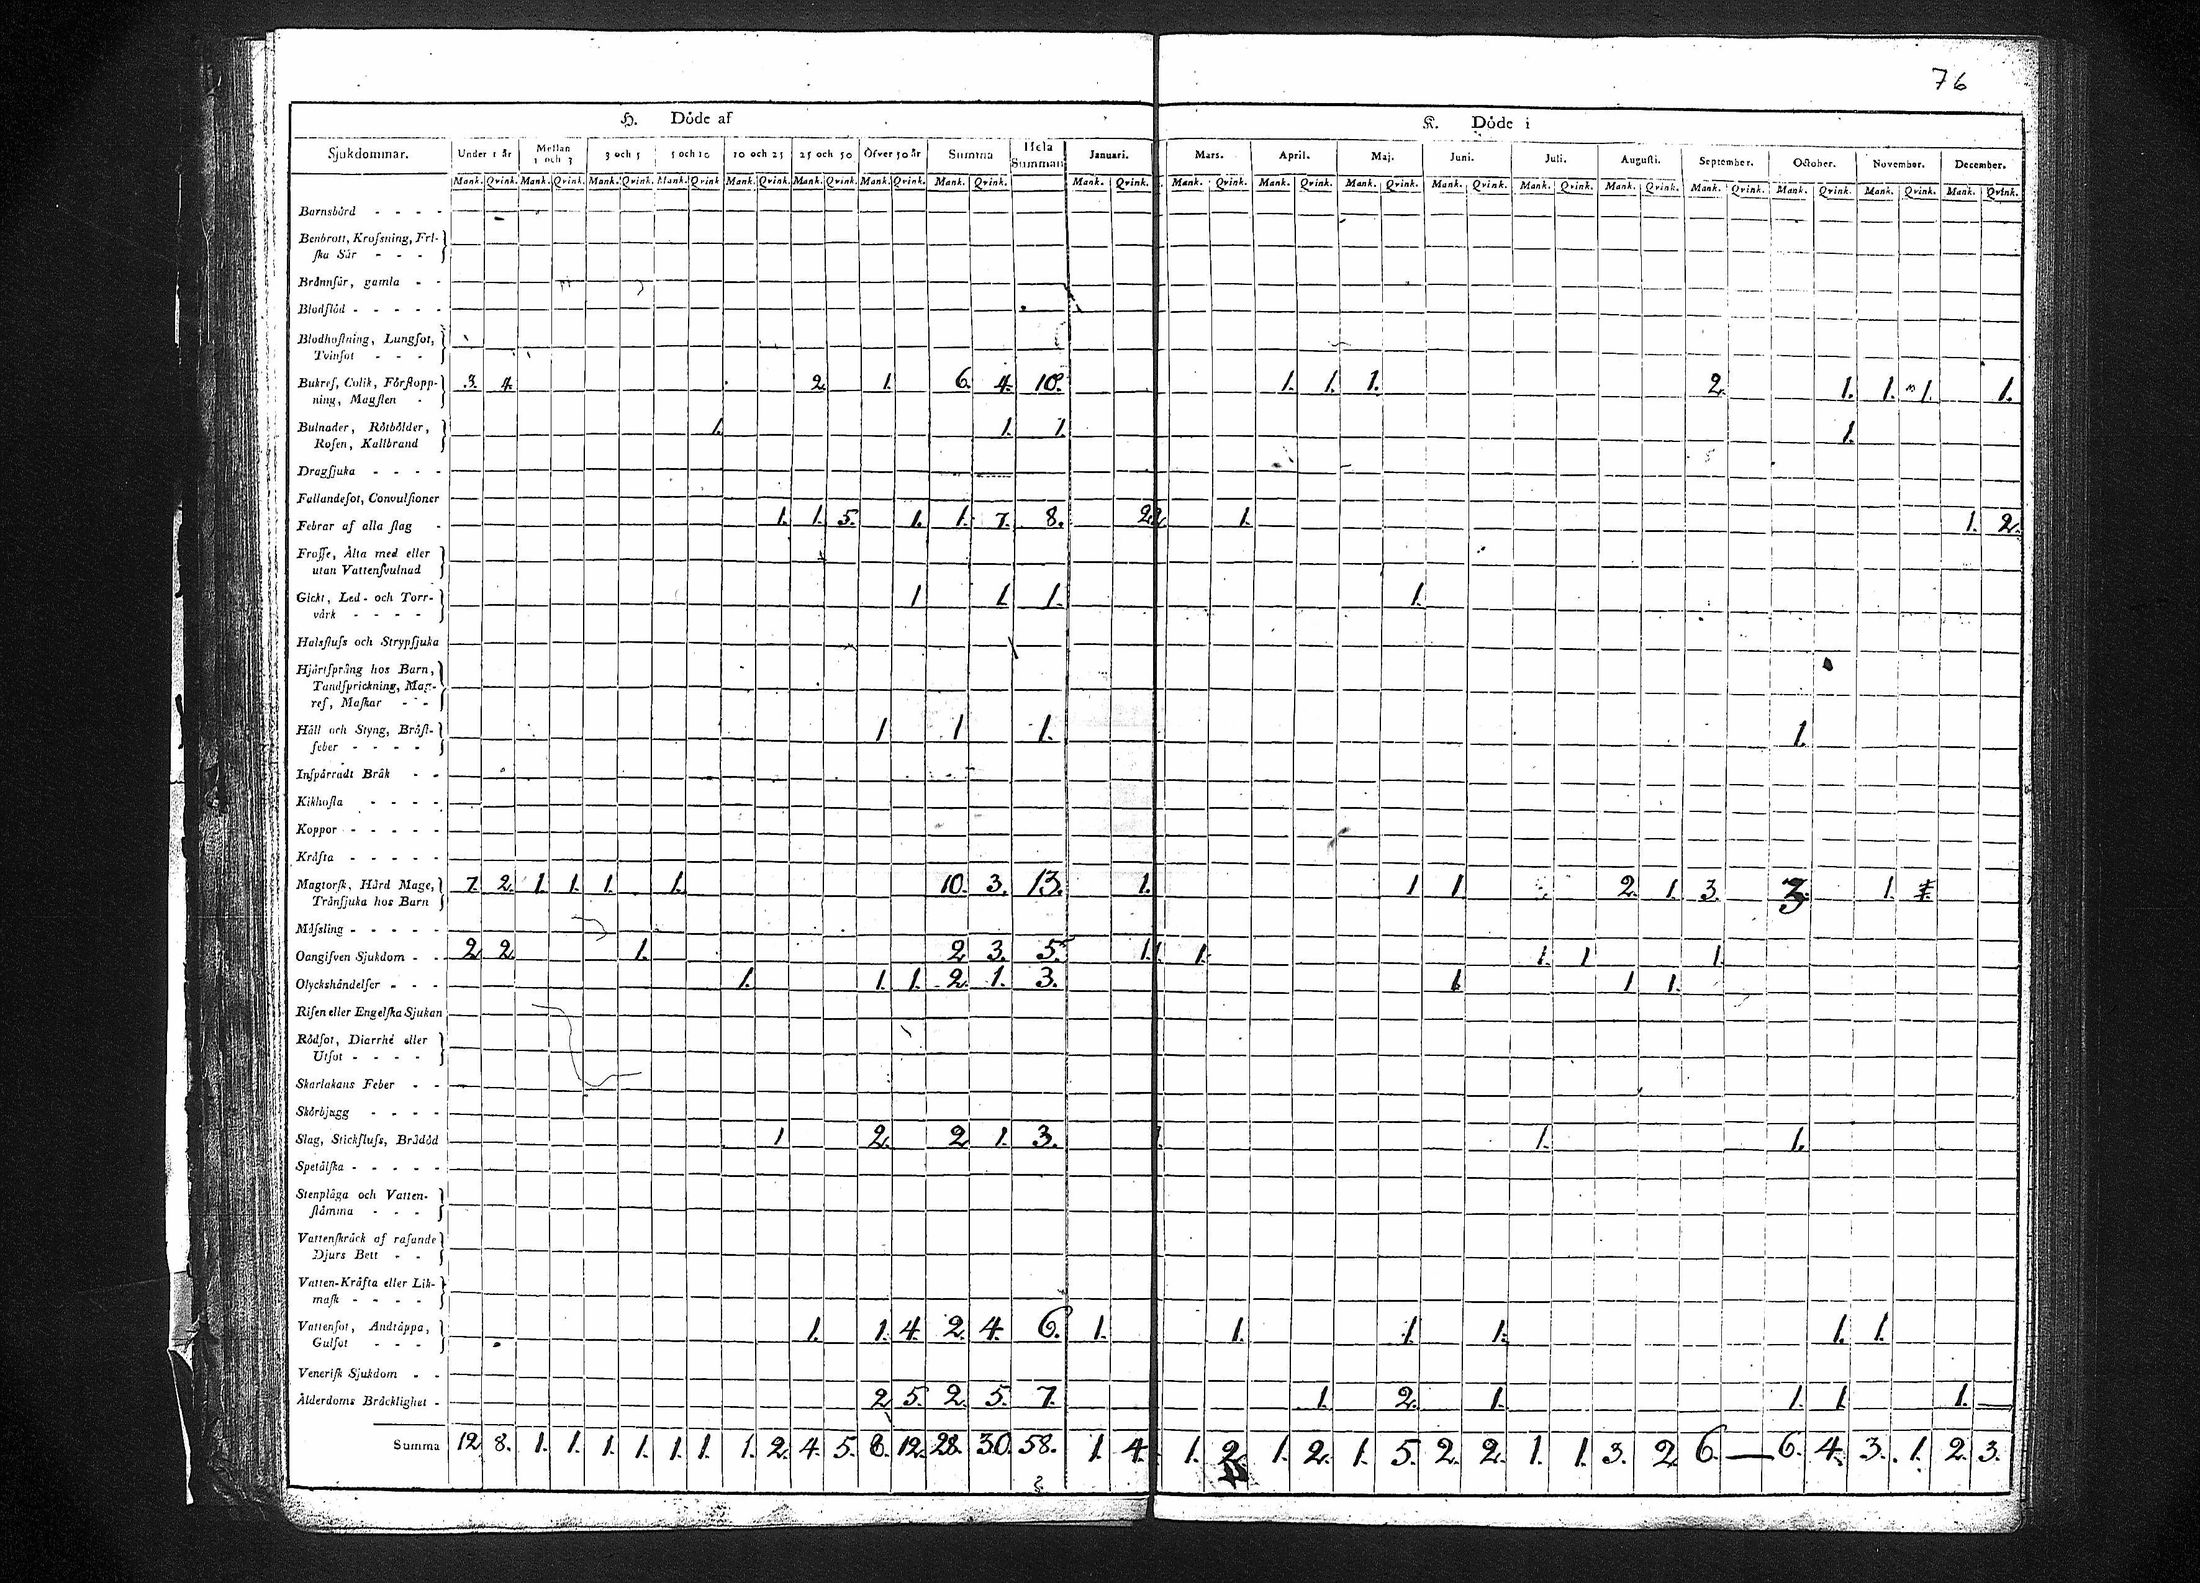 76
H. Döde af
K. Döde i
Sjukdommar. Under 1 år Mellan 1 och 3 3 och 5 5 och 10 10 och 25 25 och 50 Öfver 50 år Summa Hela Summan Januari. Mars. April. Maj. Juni. Juli. Augusti. September. October. November. December.
Mank. Qvink. Mank. Qvink. Mank. Qvink. Mank. Qvink Mank. Qvink. Mank. Qvink. Mank. Qvink. Mank. Qvink. Mank. Qvink. Mank. Qvink. Mank. Qvink. Mank. Qvink. Mank. Qvink. Mank. Qvink. Mank. Qvink. Mank. Qvink. Mank. Qvink. Mank. Qvink. Mank. Qvink.
Barnsbörd - - - -
Benbrott, Krofsning, Fri-
ſka Sår - - -
Brännſår, gamla - -
Blodflöd - - - - -
Blodhoſtning, Lungſot,
Tvinſot - - -
Bukref, Colik, Förſtopp- 3. 4. 2. 1. 6. 4. 10. 1. 1. 1. 2. 1. 1. 1. 1.
ning, Magſten -
Bulnader, Rötbölder, 1. 1. 1. 1.
Roſen, Kallbrand
Dragſjuka - - - -
Fallandeſot, Convulſioner
Febrar af alla ſlag - 1. 1. 5. 1. 1. 7. 8. 2. 1. 1. 2.
Froſſe, Älta med eller
utan Vattenſvulnad
Gickt, Led- och Torr- 1 1. 1. 1.
värk - - - -
Halsfluſs och Strypſjuka
Hjärtſprång hos Barn,
Tandſprickning, Mag-
ref, Maſkar - -
Håll och Styng, Bröſt- 1 1 1. 1.
feber - - - -
Inſpärradt Bråk - -
Kikhoſta - - - -
Koppor - - - - -
Kräfta - - - - -
Magtorſk, Hård Mage, 7. 2. 1. 1. 1. 1. 10. 3. 13. 1. 1 1 2. 1. 3. 3. 1.
Tränſjuka hos Barn
Måſsling - - - - -
Oangifven Sjukdom - - 2 2. 1. 2 3. 5. 1. 1. 1. 1 1.
Olyckshändelſer - - - 1. 1. 1. 2. 1. 3. 1. 1 1.
Riſen eller Engelſka Sjukan
Rödſot, Diarrhé eller
Utſot - - - -
Skarlakans Feber - -
Skörbjugg - - - -
Slag, Stickfluſs, Brådöd 1 2. 2 1. 3. 1. 1.
Spetälſka - - - - -
Stenplåga och Vatten-
ſtämma - - -
Vattenſkräck af raſande
Djurs Bett - -
Vatten-Kräfta eller Lik-
maſk - - - -
Vattenſot, Andtäppa, 1. 1. 4. 2. 4. 6. 1. 1. 1. 1. 1. 1.
Gulſot - - -
Veneriſk Sjukdom - -
Ålderdoms Bräcklighet - 2 5. 2. 5. 7. 1. 2. 1. 1. 1. 1.
Summa 12 8. 1. 1. 1. 1. 1. 1. 1. 2. 4. 5. 8. 12. 28. 30. 58. 1. 4. 1. 2. 1. 2. 1. 5. 2. 2. 1. 1. 3. 2 6. — 6. 4. 3. 1. 2. 3.